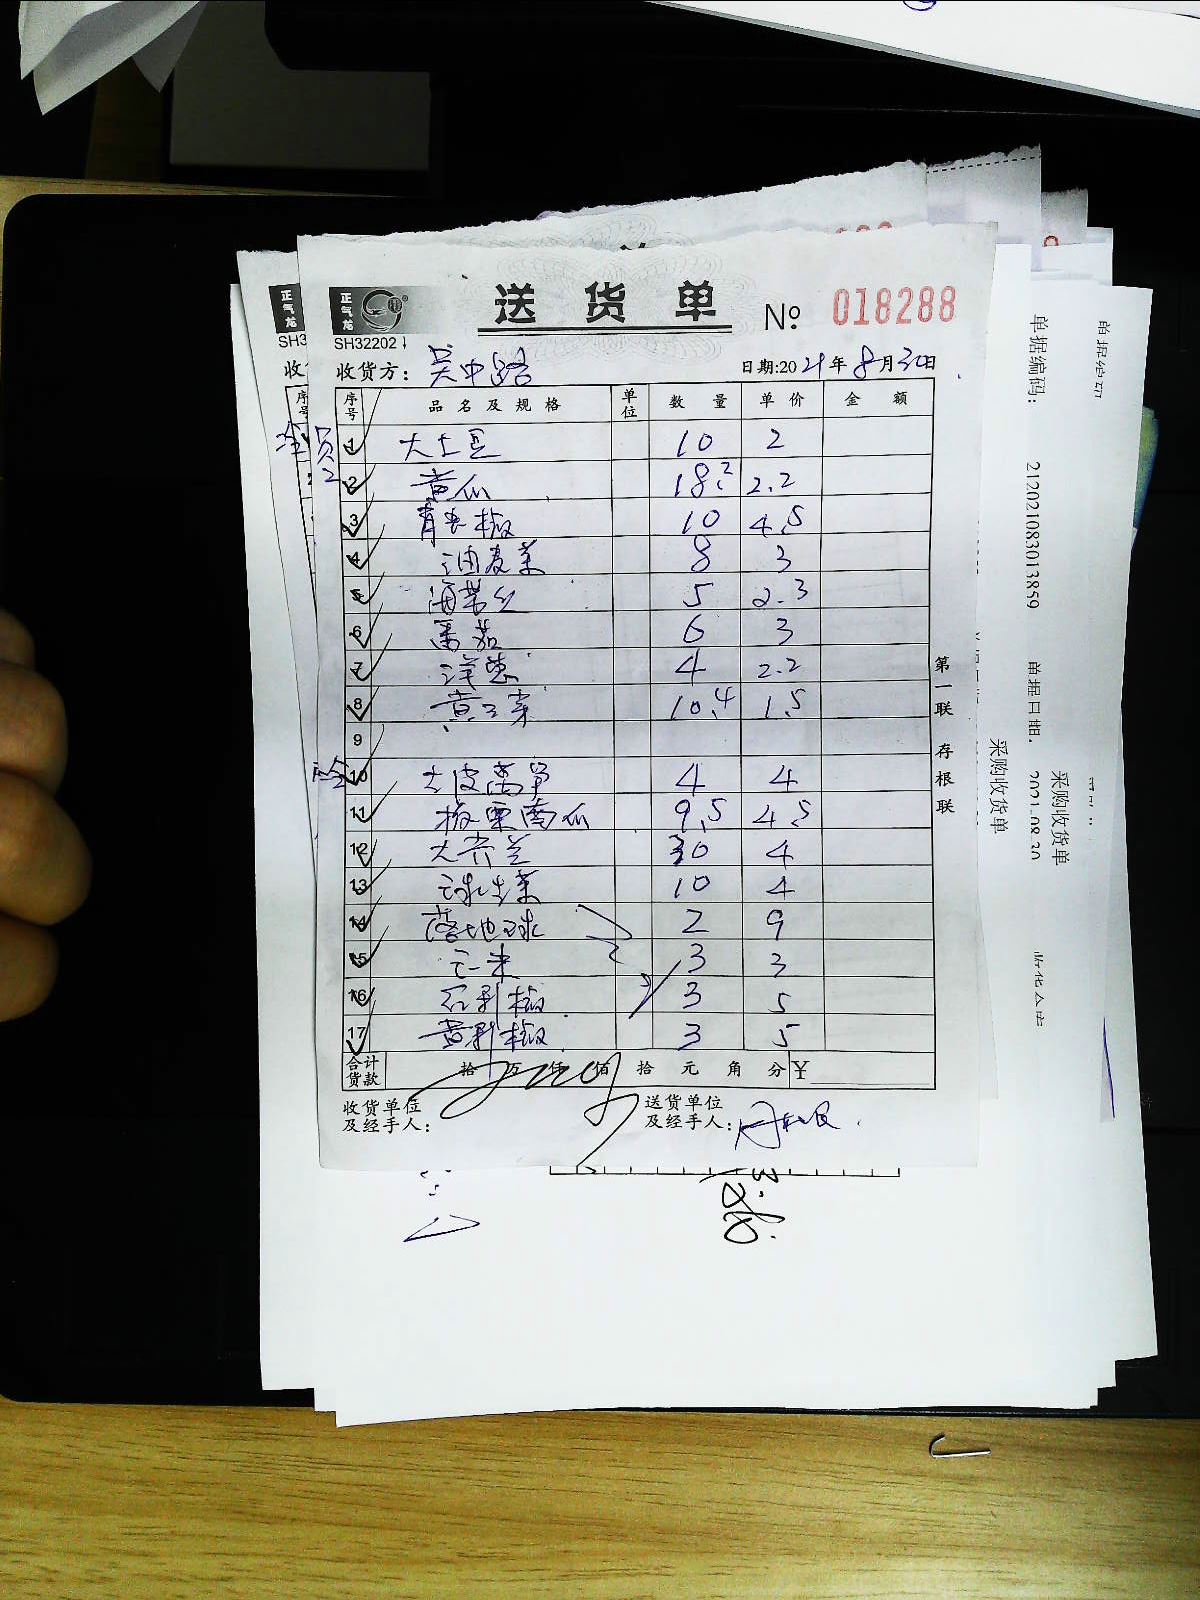 正气龙
SH32202
送 货 单 № 018288
收货方: 吴中路 日期:2021年8月30日
序号 品名及规格 单位 数量 单价 金额
员2
1 大土豆 10 2
2 黄瓜 18.2 2.2
3 青长椒 10 4.5
4 油麦菜 8 3
5 海带丝 5 2.3
6 番茄 6 3
7 洋葱 4 2.2
8 黄豆芽 10.4 1.5
9
10 大皮莴笋 4 4
11 板栗南瓜 9.5 4.5
12 大芥兰 30 4
13 球生菜 10 4
14 落地球 2 9
15 玉米 3 3
16 红彩椒 3 5
17 黄彩椒 3 5
合计货款 拾 万 仟 佰 拾 元 角 分 ¥
收货单位及经手人:
送货单位及经手人:
第一联 存根联
正气龙
SH3
收
序号
单据编码: 212021083013859 单据日期: 2021-08-30
采购收货单
采购收货单
单据编码